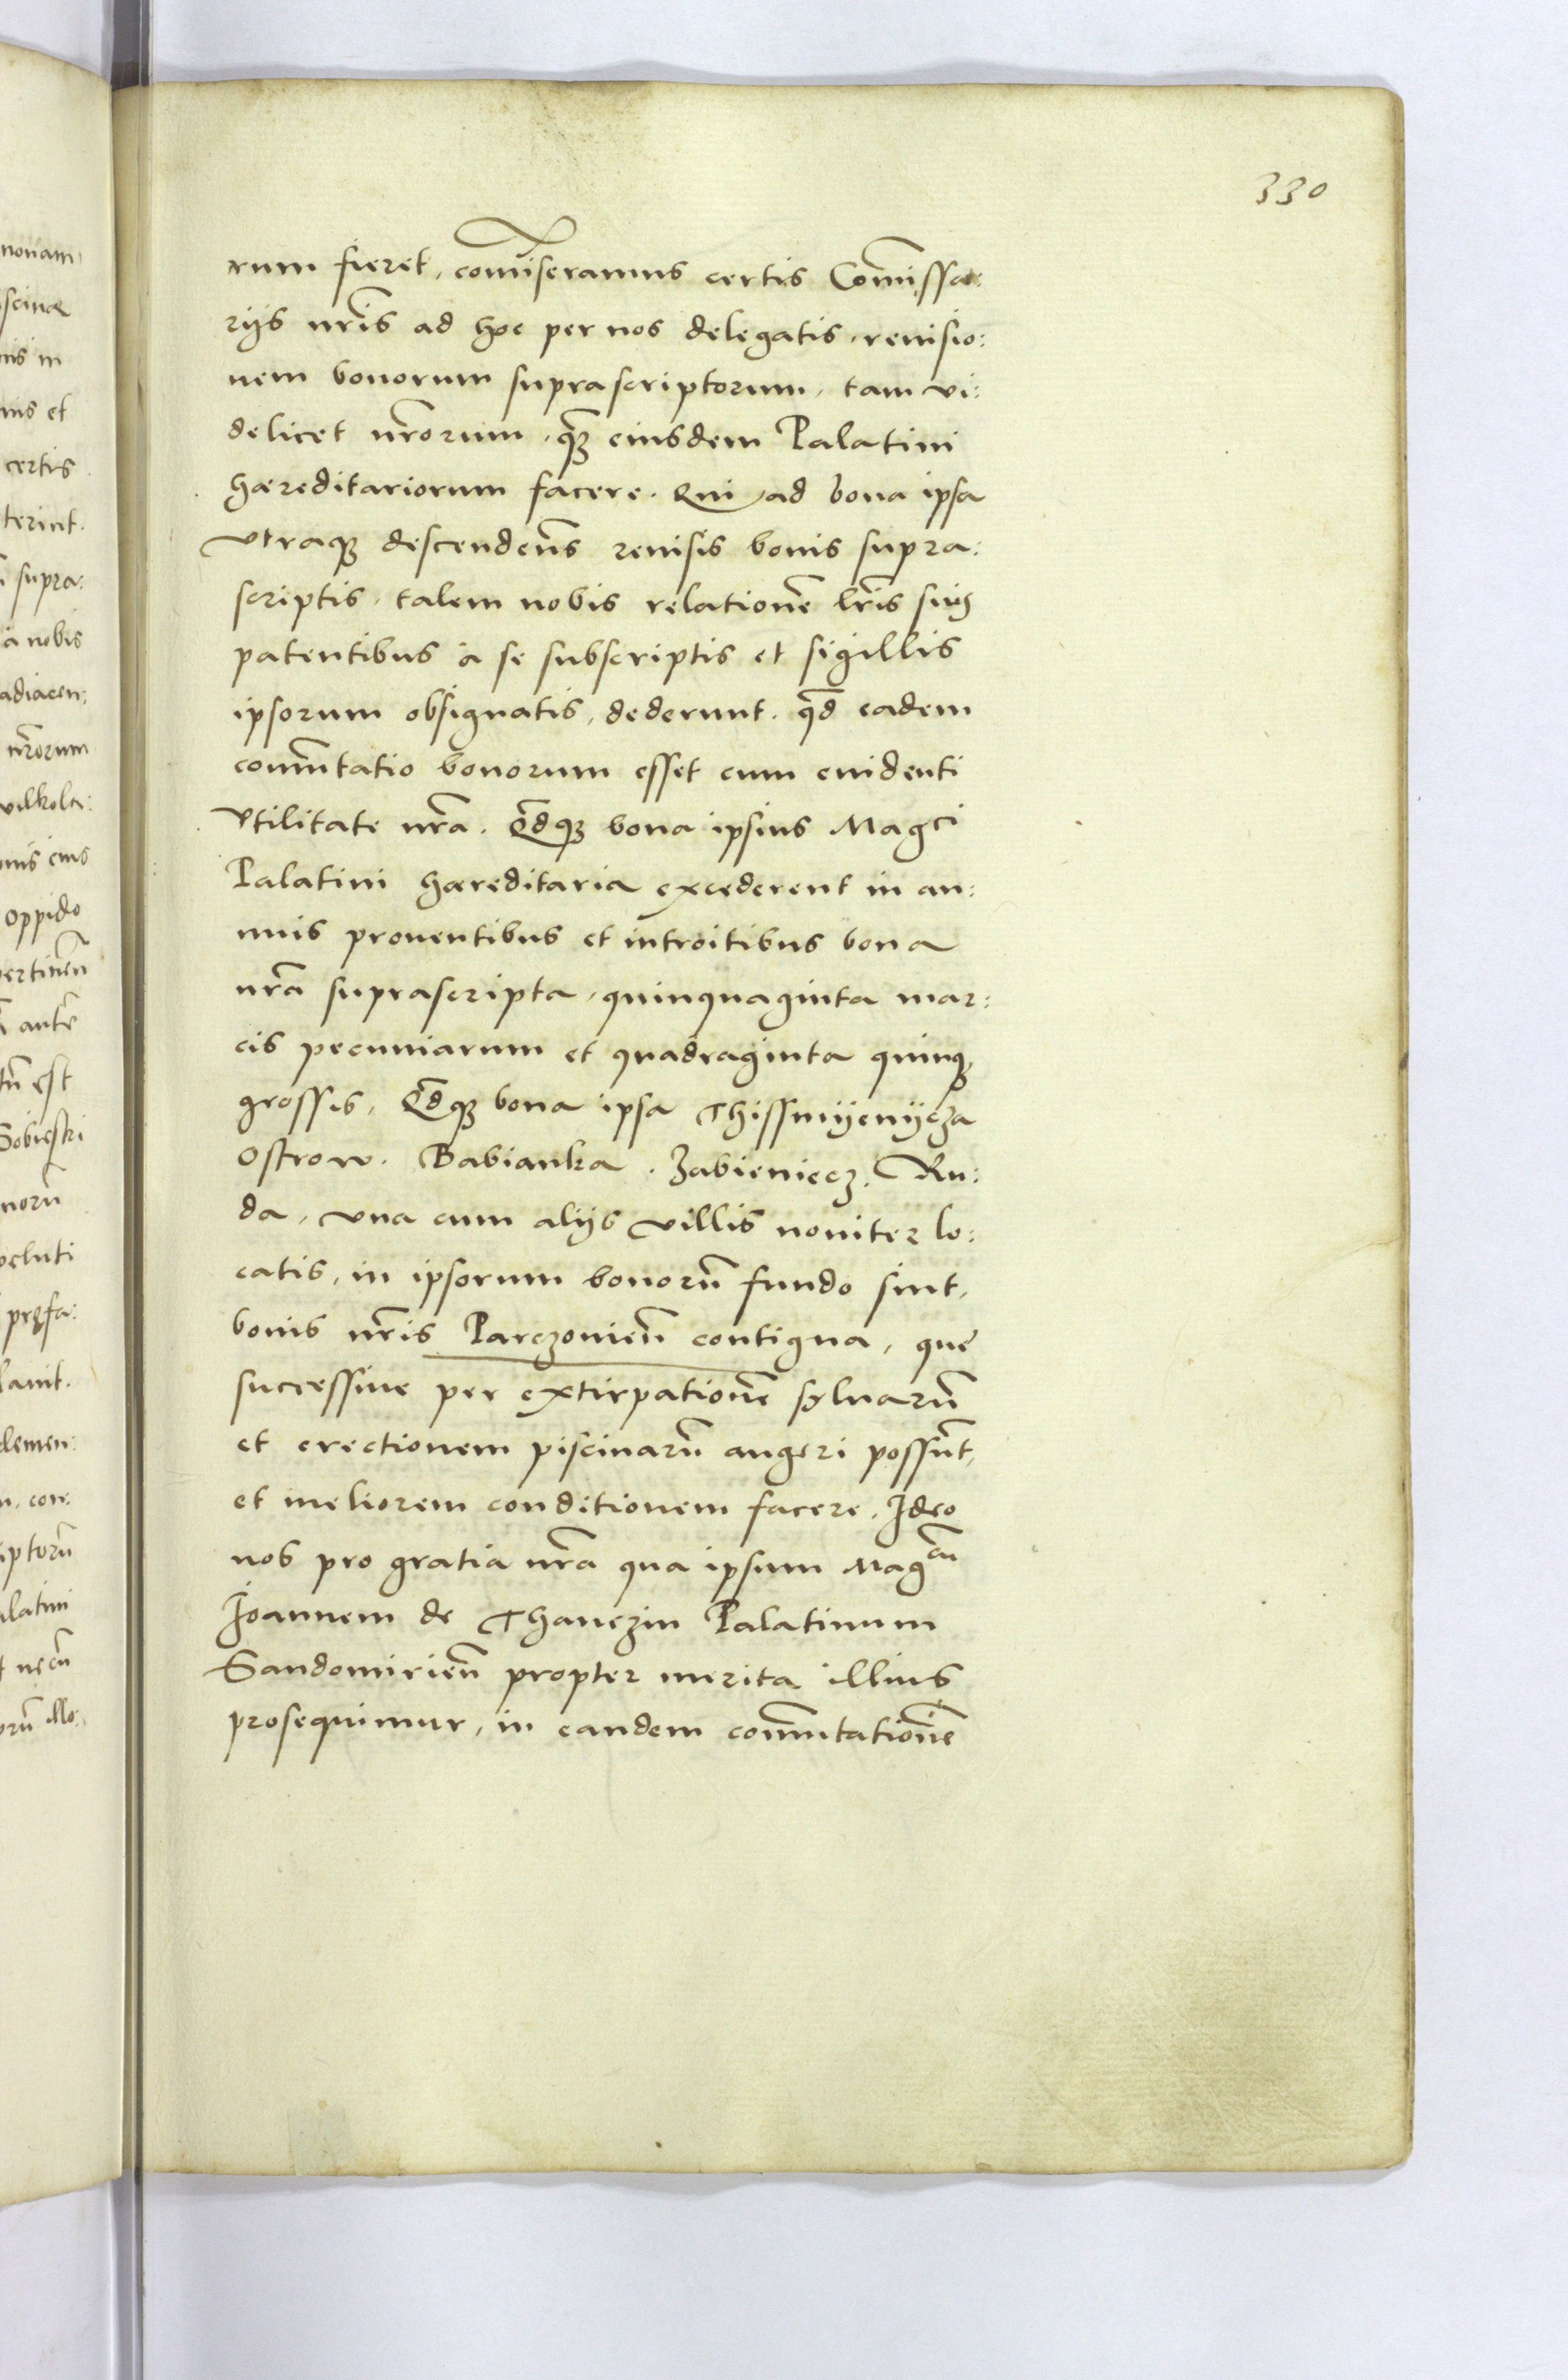 330
rum fieret, com̃iseramus certis Com̃issa:
rijs nr̃is ad hoc per nos delegatis, reuisio:
nem bonorum suprascriptorum, tam vi:
delicet nr̃orum, q̃ꝫ eiusdem Palatini
hæreditariorum facere. Qui ad bona ipsa
vtraqꝫ descendeñs reuisis bonis supra:
scriptis, talem nobis relationẽ lr̃is suis
patentibus à se subscriptis et sigillis
ipsorum obsignatis, dederunt. qd̃ eadem
com̃utatio bonorum esset cum euidenti
vtilitate nr̃a. Qd̃qꝫ bona ipsius Magci
Palatini hæreditaria excederent in an:
nuis prouentibus et introitibus bona
nr̃a suprascripta, quinquaginta mar:
cis pecuniarum et quadraginta quinqꝫ
grossis. Qd̃qꝫ bona ipsa Thissmyenycza
Ostrow. Babianka. Zabieniecz. Ru:
da, vna cum alijs villis nouiter lo:
catis, in ipsorum bonorũ fundo sint,
bonis nr̃is Parczouieñ contigua, que
successiue per extirpationẽ syluarũ
et erectionem piscinarũ augeri possũt,
et meliorem conditionem facere. Ideo
nos pro gratia nr̃a qua ipsum Magcũ
Joannem de Thanczin Palatinum
Sandomirieñ propter merita illius
prosequimur, in eandem com̃utationẽ